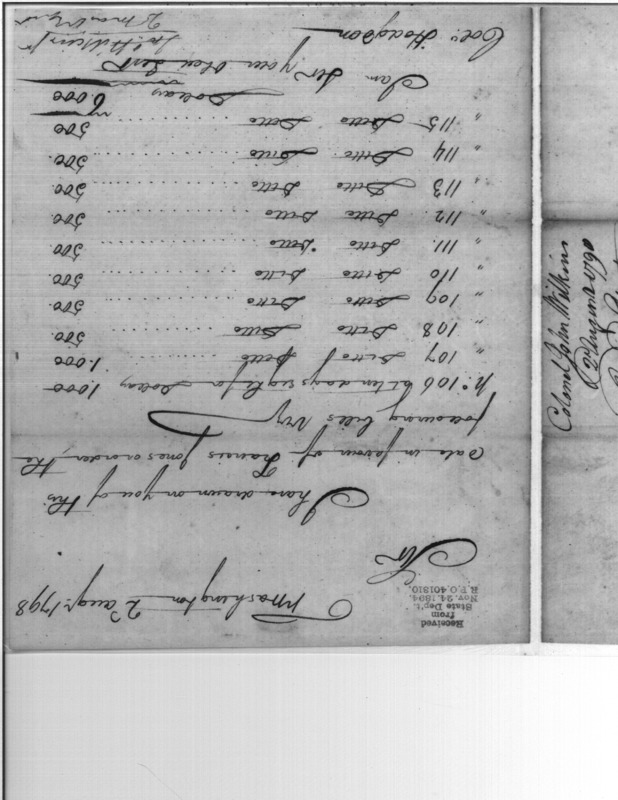 Received
from
State Dep't.
Nov. 24, 1894.
R.P.O. 401310.
Washington 2d augt. 1798
Sir
I have drawn on you of this
date in favour of Frances Jones or order, the
following bills viz
No. 106 at ten days sight for Dollars 1.000
" 107 Ditto Ditto 1.000
" 108 Ditto Ditto 500
" 109 Ditto Ditto 500
" 110 Ditto Ditto 500
" 111 Ditto Ditto 500
" 112 Ditto Ditto 500
" 113 Ditto Ditto 500
" 114 Ditto Ditto 500
" 115 Ditto Ditto 500
Dollars 6.000
I am Sir your Obed Servt
Jno. Wilkins Jr
2 Mar
Colo. Hodgdon
Colonel John Wilkins
2d August 1798